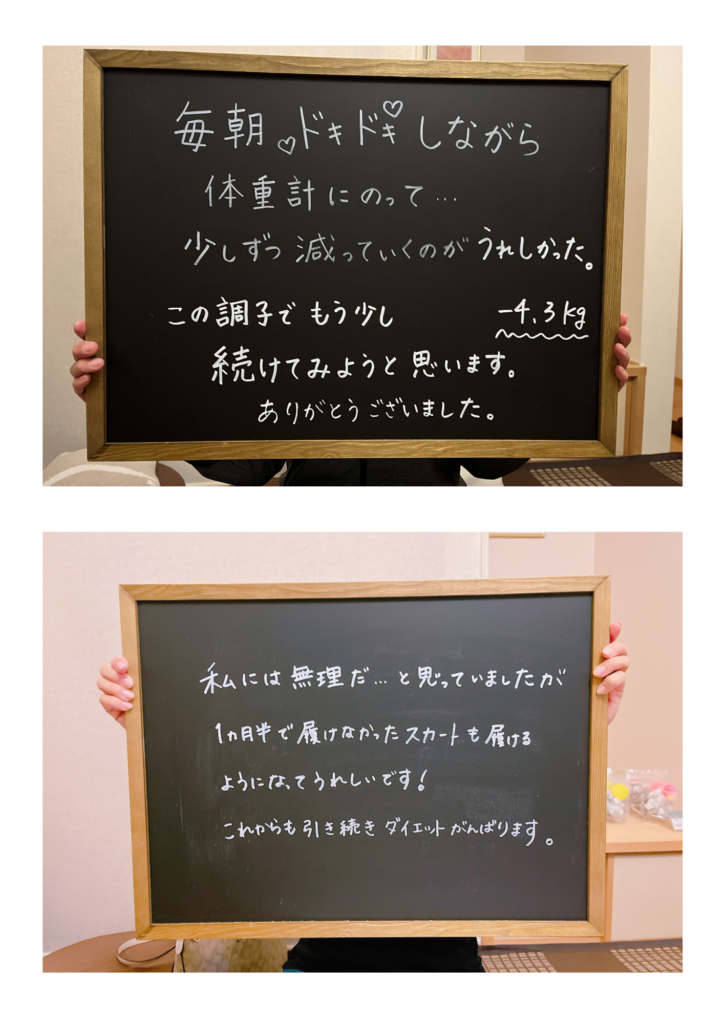 毎朝♡ドキドキ♡しながら
体重計にのって…
少しずつ減っていくのがうれしかった。
この調子でもう少し -4.3kg
続けてみようと思います。
ありがとうございました。
私には無理だ…と思っていましたが
1ヵ月半で履けなかったスカートも履ける
ようになってうれしいです!
これからも引き続きダイエットがんばります。